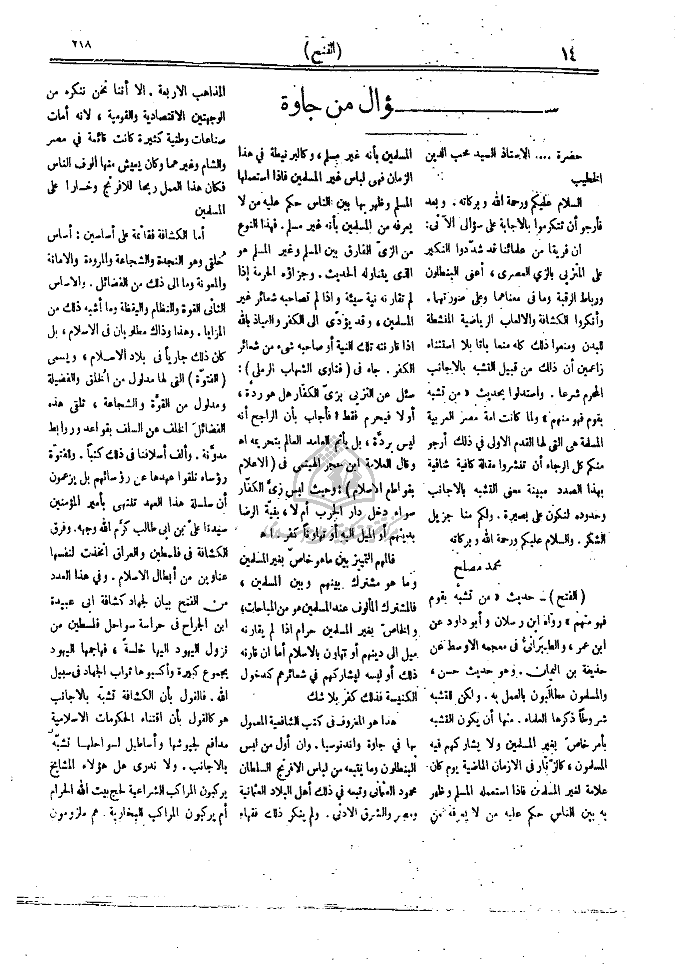 ١٤
(الفتح)
٢١٨
ـــؤال من جاوة
حضرة .... الاستاذ السيد محب الدين
الخطيب
السلام عليكم ورحمة الله وبركاته . وبعد
فأرجو أن تتكرموا بالاجابة على سؤالى الآتى :
ان فريقا من علمائنا قد شددوا النكير
على المتزيى بالزي العصرى ، أعنى البنطلون
ورباط الرقبة وما فى معناهما وعلى صورتهما .
وأنكروا الكشافة والالعاب الرياضية المنشطة
للبدن ومنعوا ذلك كله منعا باتا بلا استثناء
زاعمين أن ذلك من قبيل التشبه بالاجانب
المحرم شرعا . واستدلوا بحديث « من تشبه
بقوم فهو منهم » ولما كانت امة مصر العربية
المسلمة هى التى لها القدم الاولى فى ذلك أرجو
منكم كل الرجاء أن تنشروا مقالة كافية شافية
بهذا الصدد مبينة معنى التشبه بالاجانب
وحدوده لنكون على بصيرة . ولكم منا جزيل
الشكر . والسلام عليكم ورحمة الله وبركاته
محمد مصلح
(الفتح) ــ حديث « من تشبه بقوم
فهو منهم » رواه ابن رسلان وأبو داود عن
ابن عمر ، والطبرانىّ فى معجمه الاوسط عن
حذيفة بن اليمان . وهو حديث حسن ،
والمسلمون مطالبون بالعمل به . ولكن للتشبه
شروطاً ذكرها العلماء . منها أن يكون التشبه
بأمر خاص بغير المسلمين ولا يشاركهم فيه
المسلمون ، كالزنّار فى الازمان الماضية يوم كان
علامة لغير المسلمين فاذا استعمله المسلم وظهر
به بين الناس حكم عليه من لا يعرفه من
المسلمين بأنه غير مسلم ، وكالبرنيطة فى هذا
الزمان فهى لباس غير المسلمين فاذا استعملها
المسلم وظهر بها بين الناس حكم عليه من لا
يعرفه من المسلمين بأنه غير مسلم . فهذا النوع
من الزىّ الفارق بين المسلم وغير المسلم هو
الذى يتناوله الحديث . وجزاؤه الحرمة إذا
لم تقارنه نية سيئة واذا لم تصاحبه شعائر غير
المسلمين ، وقد يؤدّى الى الكفر والعياذ بالله
اذا قارنته تلك النية أو صاحبه شىء من شعائر
الكفر . جاء فى ( فتاوى الشهاب الرملى ) :
سئل عن التزيى بزىّ الكفار هل هو ردة ،
أولا فيحرم فقط ؟ فأجاب بأن الراجح أنه
ليس بردّة ، بل يأثم العامد العالم بتحريمه اه
وقال العلامة ابن حجر الهيتمى فى ( الاعلام
بقواطع الاسلام ) : وحيث لبس زىّ الكفار
سواء دخل دار الحرب أم لا ، بنية الرضا
بدينهم أو الميل اليه أو تهاوناً كفر . اه
فالهم التمييز بين ماهو خاصّ بغير المسلمين
وما هو مشترك بينهم وبين المسلمين ،
فالمشترك المألوف عند المسلمين هو من المباحات ،
والخاصّ بغير المسلمين حرام اذا لم يقارنه
ميل الى دينهم أو تهاون بالاسلام أما ان قارنه
ذلك أو لبسه ليشاركهم فى شعائرهم كدخول
الكنيسة فذلك كفر بلا شك
هذا هو المعروف فى كتب الشافعية المعمول
بها فى جاوة واندنوسيا . وان أول من لبس
البنطلون وما يتبعه من لباس الافرنج السلطان
محمود العثمانى وتبعه فى ذلك أهل البلاد العثمانية
ومصر والشرق الادنى . ولم ينكر ذلك فقهاء
المذاهب الاربعة . الا أننا نحن ننكره من
الوجهتين الاقتصادية والقومية ، لانه أمات
صناعات وطنية كثيرة كانت قائمة فى مصر
والشام وغيرهما وكان يعيش منها ألوف الناس
فكان هذا العمل ربحا للافرنج وخسارا على
المسلمين
أما الكشافة فقائمة على أساسين : أساس
خُلقى وهو النجدة والشجاعة والمروءة والامانة
والمعونة وما الى ذلك من الفضائل . والاساس
الثانى القوة والنظام واليقظة وما أشبه ذلك من
المزايا . وهذا وذاك مطلوبان فى الاسلام ، بل
كان ذلك جارياً فى بلاد الاسلام ، ويسمى
( الفتوّة ) التى لها مدلول من الخلق والفضيلة
ومدلول من القوّة والشجاعة ، تلقى هذه
الفضائل الخلف عن السلف بقواعد وروابط
مدوّنة . وألف أسلافنا فى ذلك كتباً . وللفتوة
رؤساء تلقوا عهدها عن رؤسائهم بل يزعمون
أن سلسلة هذا العهد تنتهى بأمير المؤمنين
سيدنا علىّ بن ابى طالب كرّم الله وجهه . وفرق
الكشافة فى فلسطين والعراق اتخذت لنفسها
عناوين من أبطال الاسلام . وفى هذا العدد
من الفتح بيان لجهاد كشافة ابى عبيدة
ابن الجراح فى حراسة سواحل فلسطين من
نزول اليهود اليها خلسة ، فهاجمها اليهود
بجموع كبيرة وأكسبوها ثواب الجهاد فى سبيل
الله . فالقول بأن الكشافة تشبّه بالاجانب
هو كالقول بأن اقتناء الحكومات الاسلامية
مدافع لجيوشها وأساطيل لسواحلها تشبّه
بالاجانب . ولا ندرى هل هؤلاء المشايخ
يركبون المراكب الشراعية لحج بيت الله الحرام
أم يركبون المراكب البخارية . هم ملزومون